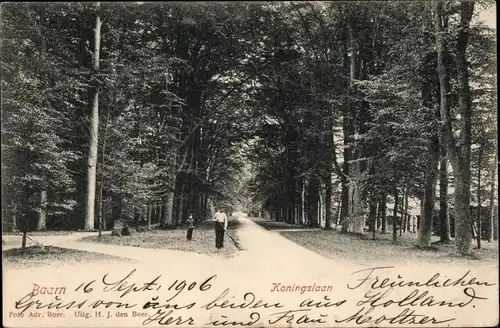 Baarn Koningslaan
16 Sept. 1906 Freunlichen
Gruss von uns beiden aus Holland.
Herr und Frau Moltzer.
Foto Adr. Boer. Uitg. H. J. den Boer.